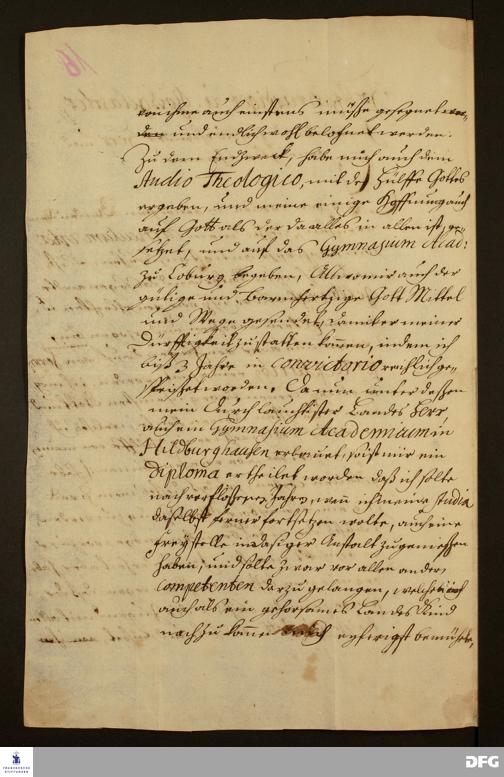 von ihme auch einstens müsse gesegnet wer-
den und endlich wohl belohnet werden.
Zu dem Endzweck, habe mich auch dem
Studio Theologico, mit der Hülffe Gottes
ergeben, und meine einige Hoffnung auch
auf Gott als der da alles in allen ist, ge-
setzet, und auf das Gymnasium Acad:
zu Coburg begeben, Allwo mir auch der
gütige und Barmhertzige Gott Mittel
und Wege gesendet, damit er meiner
Dürfftigkeit zu statten kommen, indem ich
biß 3 Jahre in Convictorio reichlich ge-
speiset worden. Da nun unter deßen
mein Durchlauchtister Landes Herr,
auch ein Gymnasium Academicum in
Hildburghausen so ist mir ein
Diploma ertheilet worden daß ich solte
nach verfloßenen Jahre, wan ich meine Studia
daselbst ferner fortsetzen wolte, auch eine
Freystelle in dasiger Anstalt zu geniessen
haben, und solte zwar vor allen andern
Competenten darzu gelangen, welches
auch als ein gehorsames Landes Kind
nach zu kommen mich eyferigst bemühete,
FRANCKESCHE
STIFTUNGEN
DFG